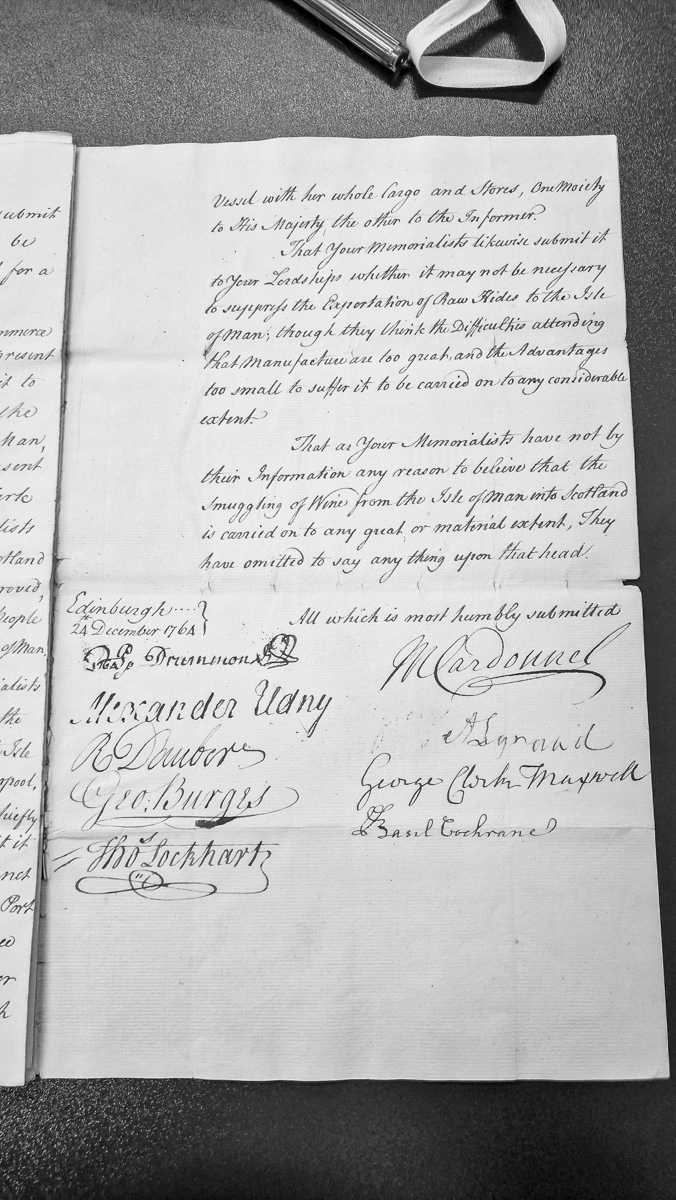 submit
be
for a
mmerce
present
it to
the
Man,
sent
lists
otland
roved,
People
of Man
ialists
the
Isle
rpool,
hiefly
t it
Port
er
Vessel with her whole Cargo and Stores, One Moiety
to His Majesty, the other to the Informer.
That Your Memorialists likewise submit it
to Your Lordships whether it may not be necessary
to suppress the Exportation of Raw Hides to the Isle
of Man; though they think the Difficultis attending
that Manufacture are too great, and the Advantages
too small to suffer it to be carried on to any considerable
extent.
That as Your Memorialists have not by
their Information any reason to beleive that the
Smuggling of Wine from the Isle of Man into Scotland
is carried on to any great or material extent, They
have omitted to say any thing upon that head.
All which is most humbly submitted
Edinburgh
24th December 1764
Drummond
Alexander Udny
R Dauber
Geo: Burges
Thos Lockhart
M Cardonnel
George Clerk Maxwell
Basil Cochrane